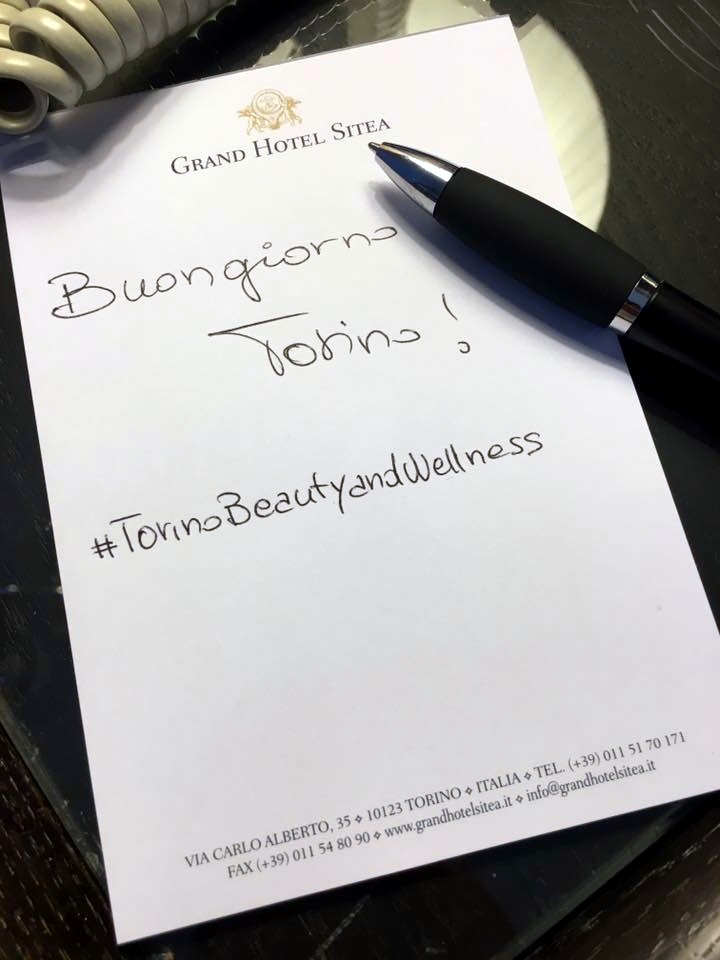 GRAND HOTEL SITEA
Buongiorno
Torino!
#TorinoBeautyandWellness
VIA CARLO ALBERTO, 35 ❖ 10123 TORINO ❖ ITALIA ❖ TEL. (+39) 011 51 70 171
FAX (+39) 011 54 80 90 ❖ www.grandhotelsitea.it ❖ info@grandhotelsitea.it